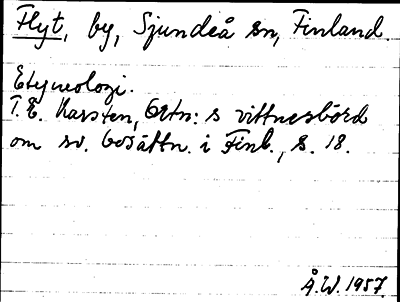 Flyt, by, Sjundeå sn, Finland.
Etymologi.
T. E. Karsten, Ortn:s vittnesbörd
om sv. bosättn. i Finl., s. 18.
Å.W. 1957